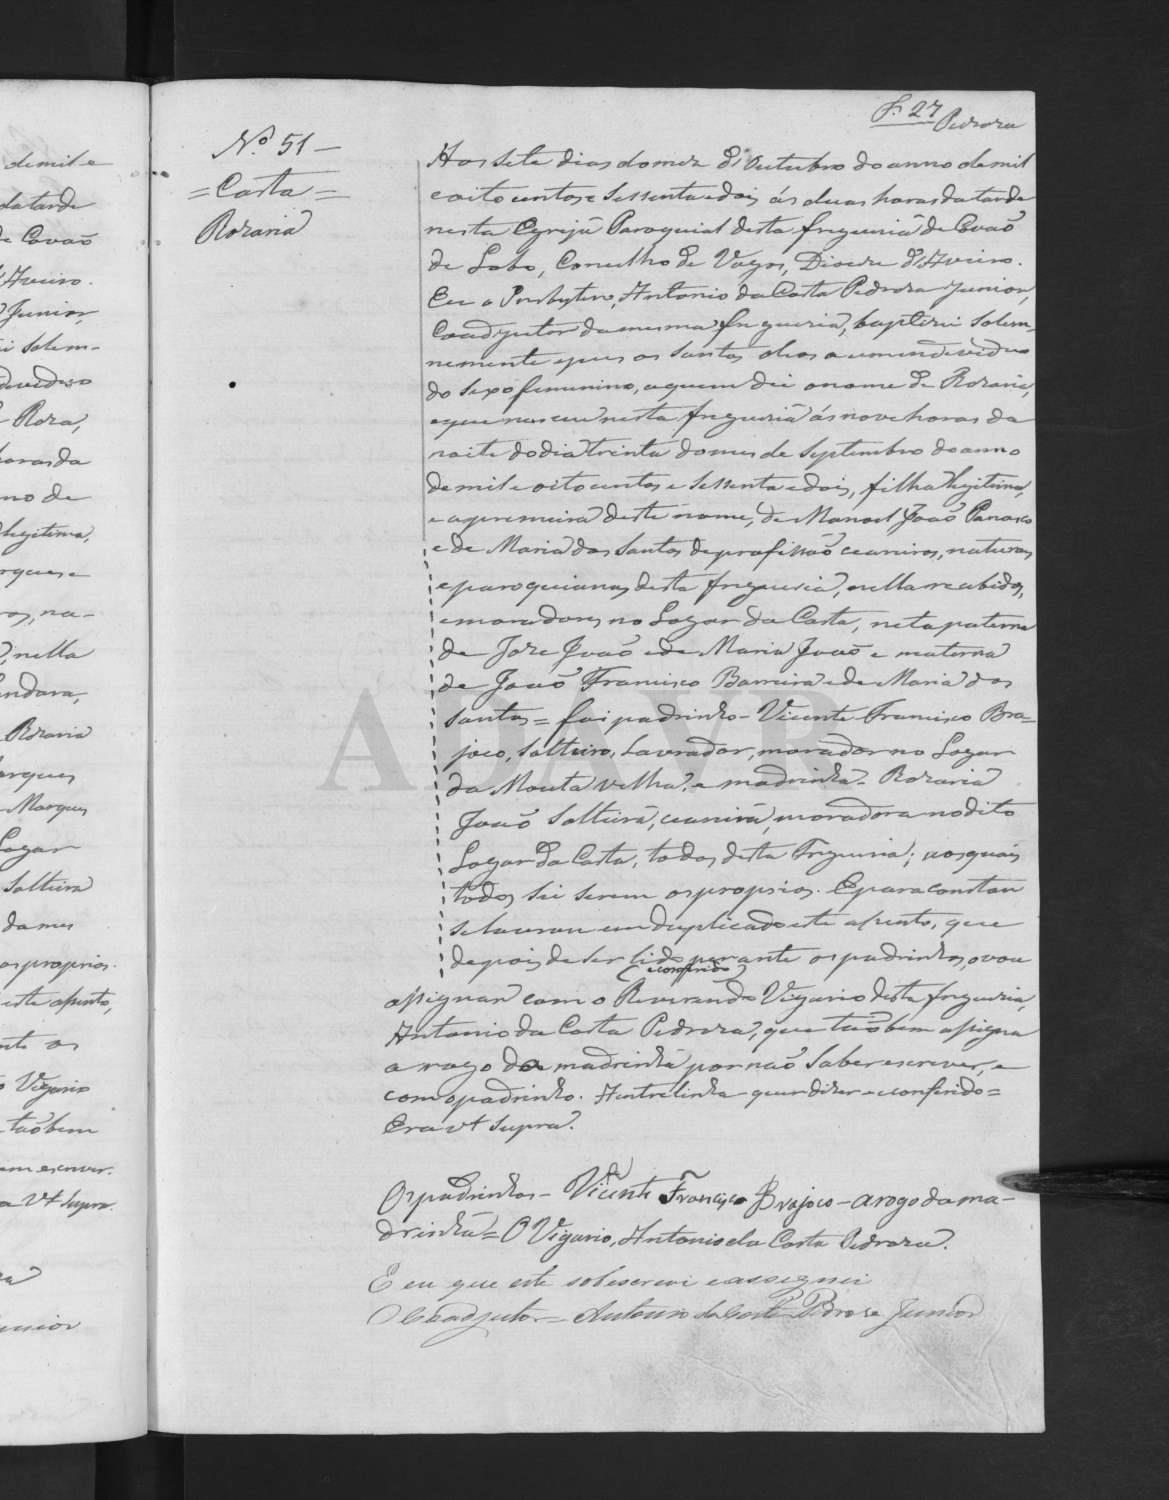 f. 27 Pedroza
Nº 51 —
= Costa =
Rozaria
Aos sete dias do mez d'Outubro do anno de mil
e oito centos e sessenta e dois ás duas horas da tarde
nesta Egrejá Paroquial desta freguesiá de Covaõ
de Lobo, Concelho de Vagos, Diocese d'Aveiro.
Eu o Presbytero, Antonio da Costa Pedroza Junior,
Coadjutor da mesma freguesia, baptizei solem-
nemente e pus os santos oleos a um individuo
do sexo femenino, a quem dei o nome de Rozaria,
e que nasceu nesta freguesiá ás nove horas da
noite do dia trinta do mes de Septembro do anno
de mil e oito centos e sessenta e dois, filha legitima,
e a premeira deste nome, de Manoel Joaõ
e de Maria dos Santos de profissaõ ceareiros, naturaes
e paroquianos desta freguesia, nella recebidos,
e moradores no Logar da Costa, neta paterna
de Joze Joaõ e de Maria Joaõ e materna
de Joaõ Francisco Barreira e de Maria dos
Santos = foi padrinho - Vicente Francisco Bra-
joco, solteiro, Lavrador, morador no Logar
da Mouta velha, e madrinha - Rozaria
Joaõ solteira, ceareira, moradora no dito
Logar da Costa, todos desta Freguesia; os quais
todos sei serem os proprios. E para constar
se lavrou em duplicado este assento, que
depois de ser lido perante os padrinhos, o vou
(e conferido)
assignar com o Reverendo Vigario desta freguesia,
Antonio da Costa Pedroza, que taõbem assigna
a rogo da madrinha por naõ saber escrever, e
com o padrinho. A entrelinha quer dizer - e conferido =
Era vt supra.
Os padrinhos - Vicente Francisco Brajoco - a rogo da ma-
drinha = O Vigario, Antonio da Costa Pedroza.
E eu que este sobescrevi e assegnei
O Coadjutor = Antonio da Costa Pedroza Junior
de mil e
da tarde
de Covaõ
d'Aveiro.
Junior,
solem-
Roza,
horas da
legitima,
na-
nella
Rozaria
Marques
Marques
Logar
solteira
da mes
os proprios.
este assento,
Vigario
taõbem
vt supra.
ADAVR